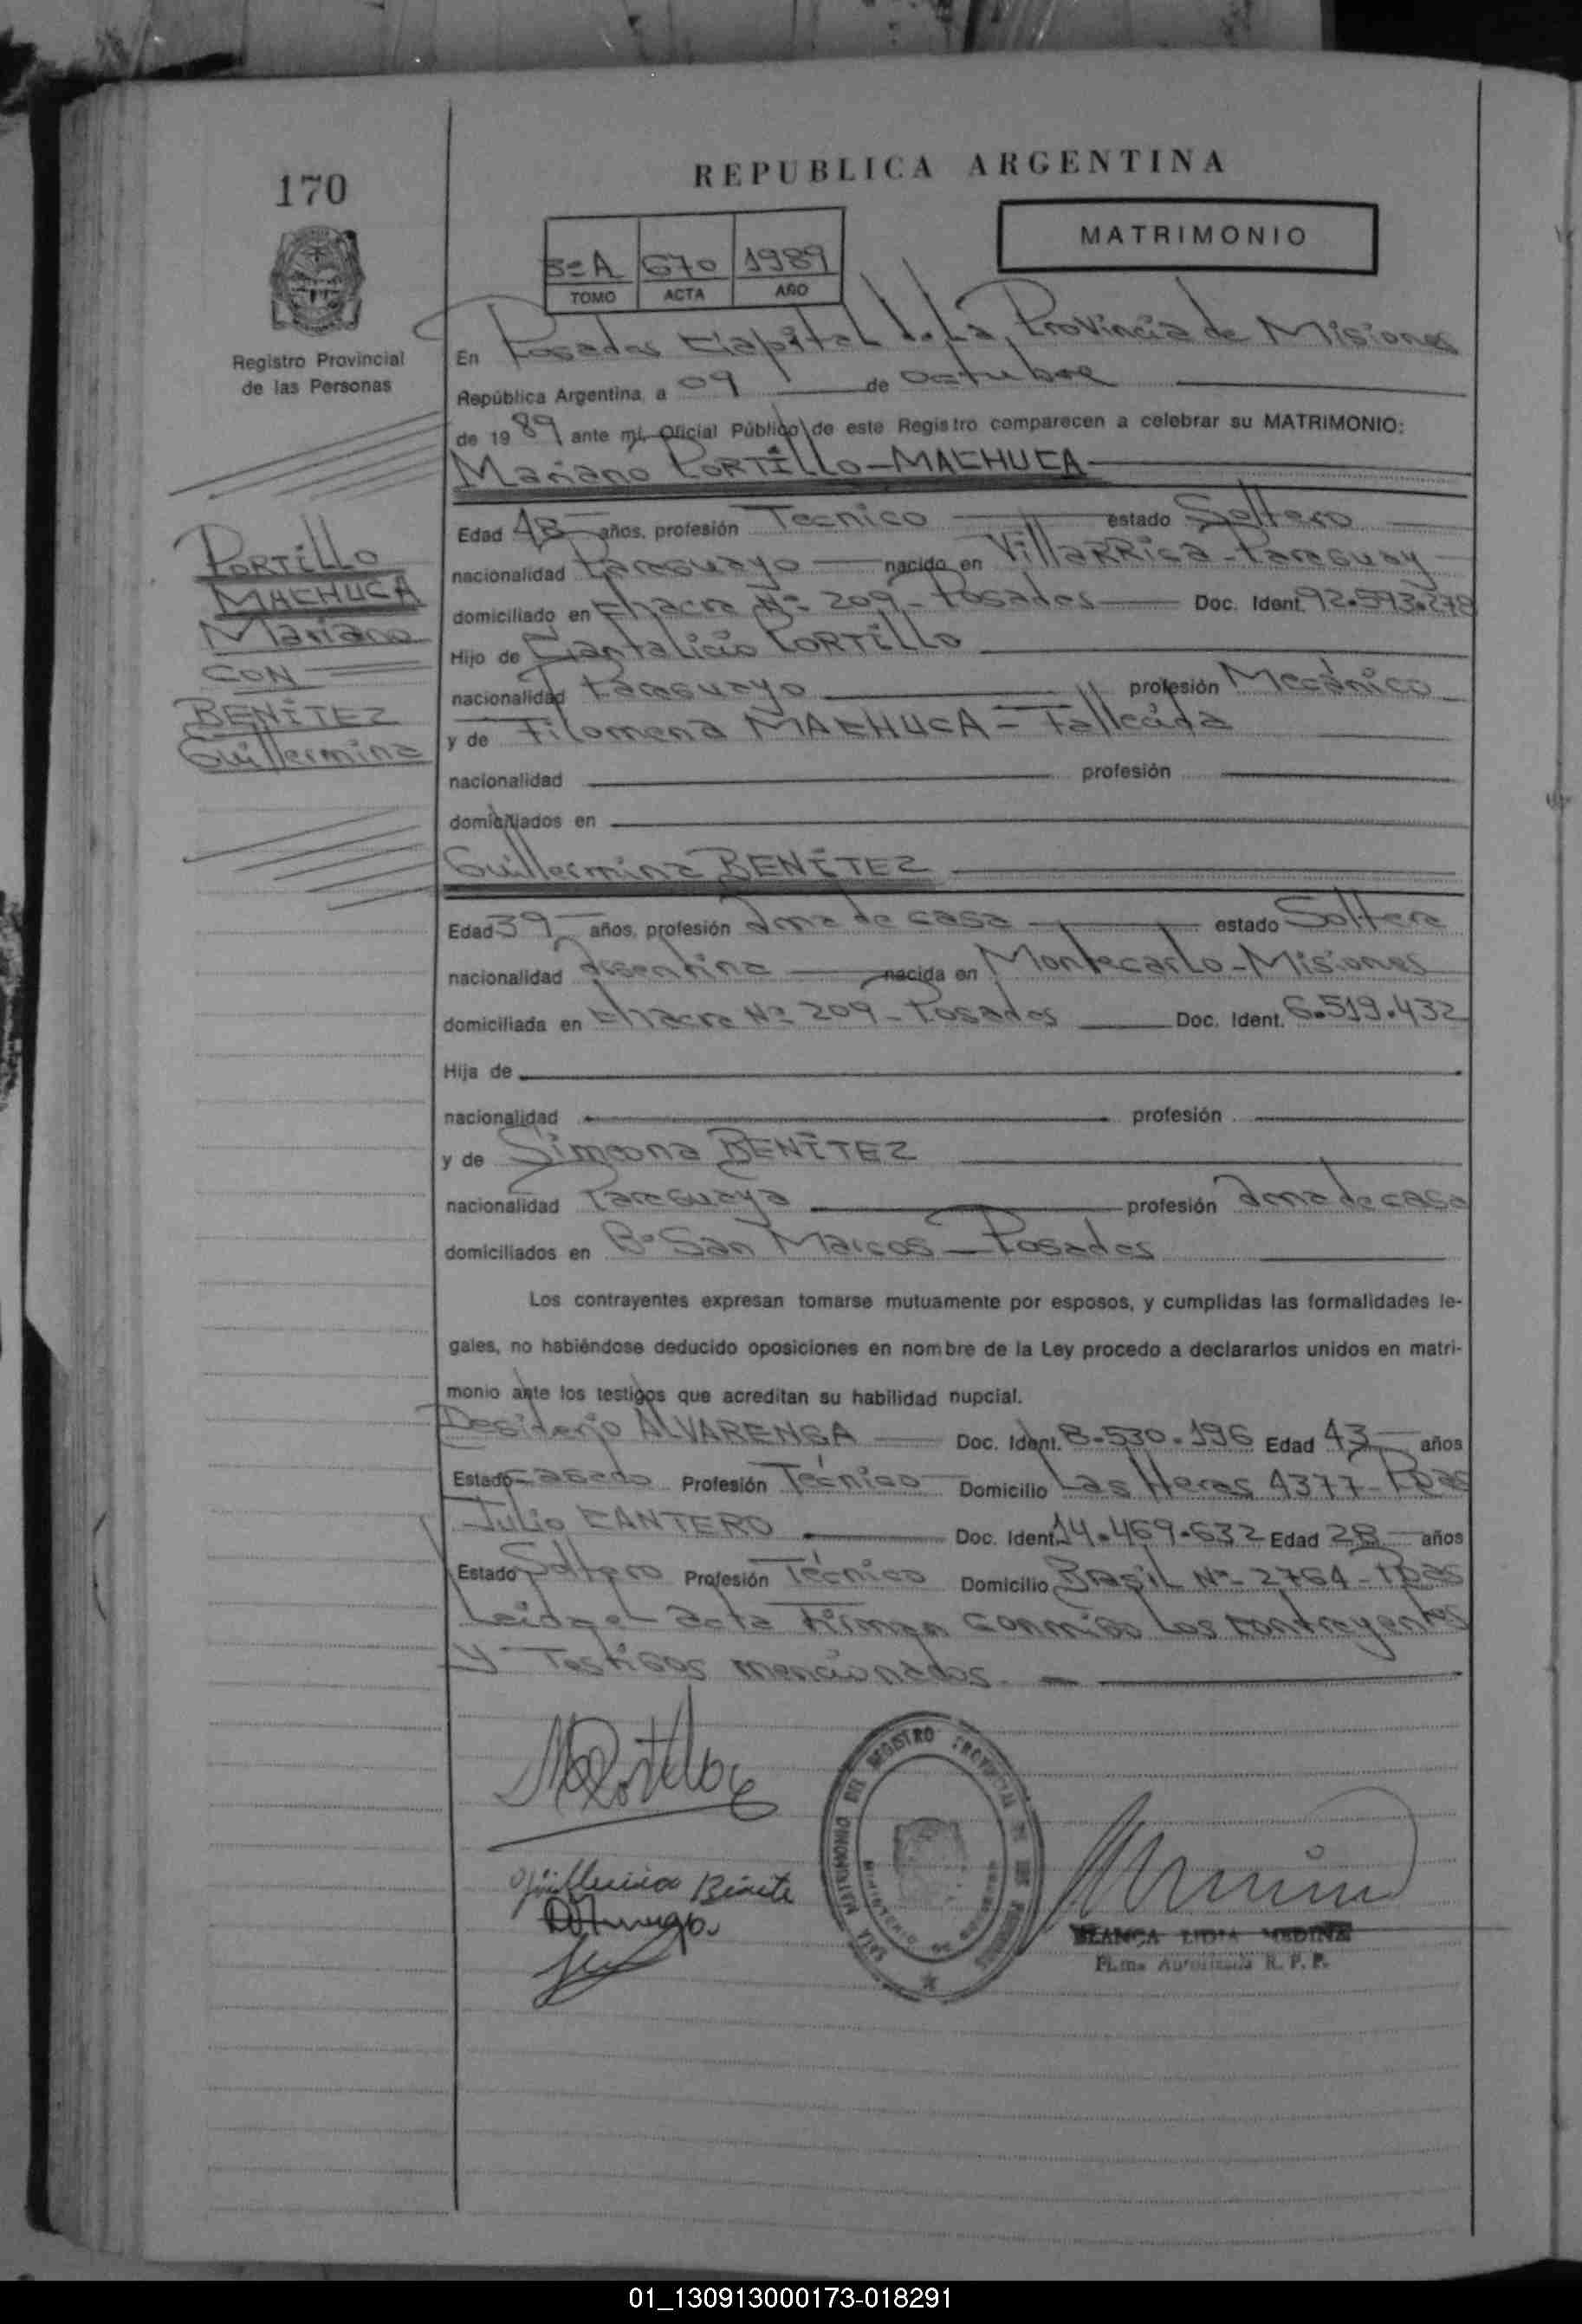 170
REPUBLICA ARGENTINA
MATRIMONIO
3º A 670 1989
TOMO ACTA AÑO
Registro Provincial
de las Personas
En Posadas Capital de La Provincia de Misiones
República Argentina, a 09 de octubre
de 1989 ante mi, Oficial Público de este Registro comparecen a celebrar su MATRIMONIO:
Mariano PORTILLO-MACHUCA
PORTILLO
MACHUCA
Mariano
CON
BENÍTEZ
Guillermina
Edad 48 años, profesión Tecnico estado Soltero
nacionalidad Paraguayo nacido en Villarrica-Paraguay
domiciliado en Chacra Nº 209-Posadas Doc. Ident. 92.593.278
Hijo de Cantalicio PORTILLO
nacionalidad Paraguayo profesión Mecánico
y de Filomena MACHUCA = Fallecida
nacionalidad profesión
domiciliados en
Guillermina BENÍTEZ
Edad 39 años, profesión Ama de casa estado Soltera
nacionalidad Argentina nacida en Montecarlo-Misiones
domiciliada en Chacra Nº 209-Posadas Doc. Ident. 6.519.432
Hija de
nacionalidad profesión
y de Simeona BENÍTEZ
nacionalidad Paraguaya profesión Ama de casa
domiciliados en Bº San Marcos-Posadas
Los contrayentes expresan tomarse mutuamente por esposos, y cumplidas las formalidades le-
gales, no habiéndose deducido oposiciones en nombre de la Ley procedo a declararlos unidos en matri-
monio ante los testigos que acreditan su habilidad nupcial.
Desiderio ALVARENGA Doc. Ident. 8.530.196 Edad 43 años
Estado casado Profesión Técnico Domicilio Las Heras 4377-Pdas
Julio CANTERO Doc. Ident. 14.469.632 Edad 28 años
Estado Soltero Profesión Técnico Domicilio Brasil Nº 2764-Pdas
Leida el acta Firman conmigo Los contrayentes
y Testigos mencionados.
REGISTRO PROVINCIAL DE LAS PERSONAS
SALA MATRIMONIO
BLANCA LIDIA MEDINA
Firma Autorizada R. P. P.
01_130913000173-018291